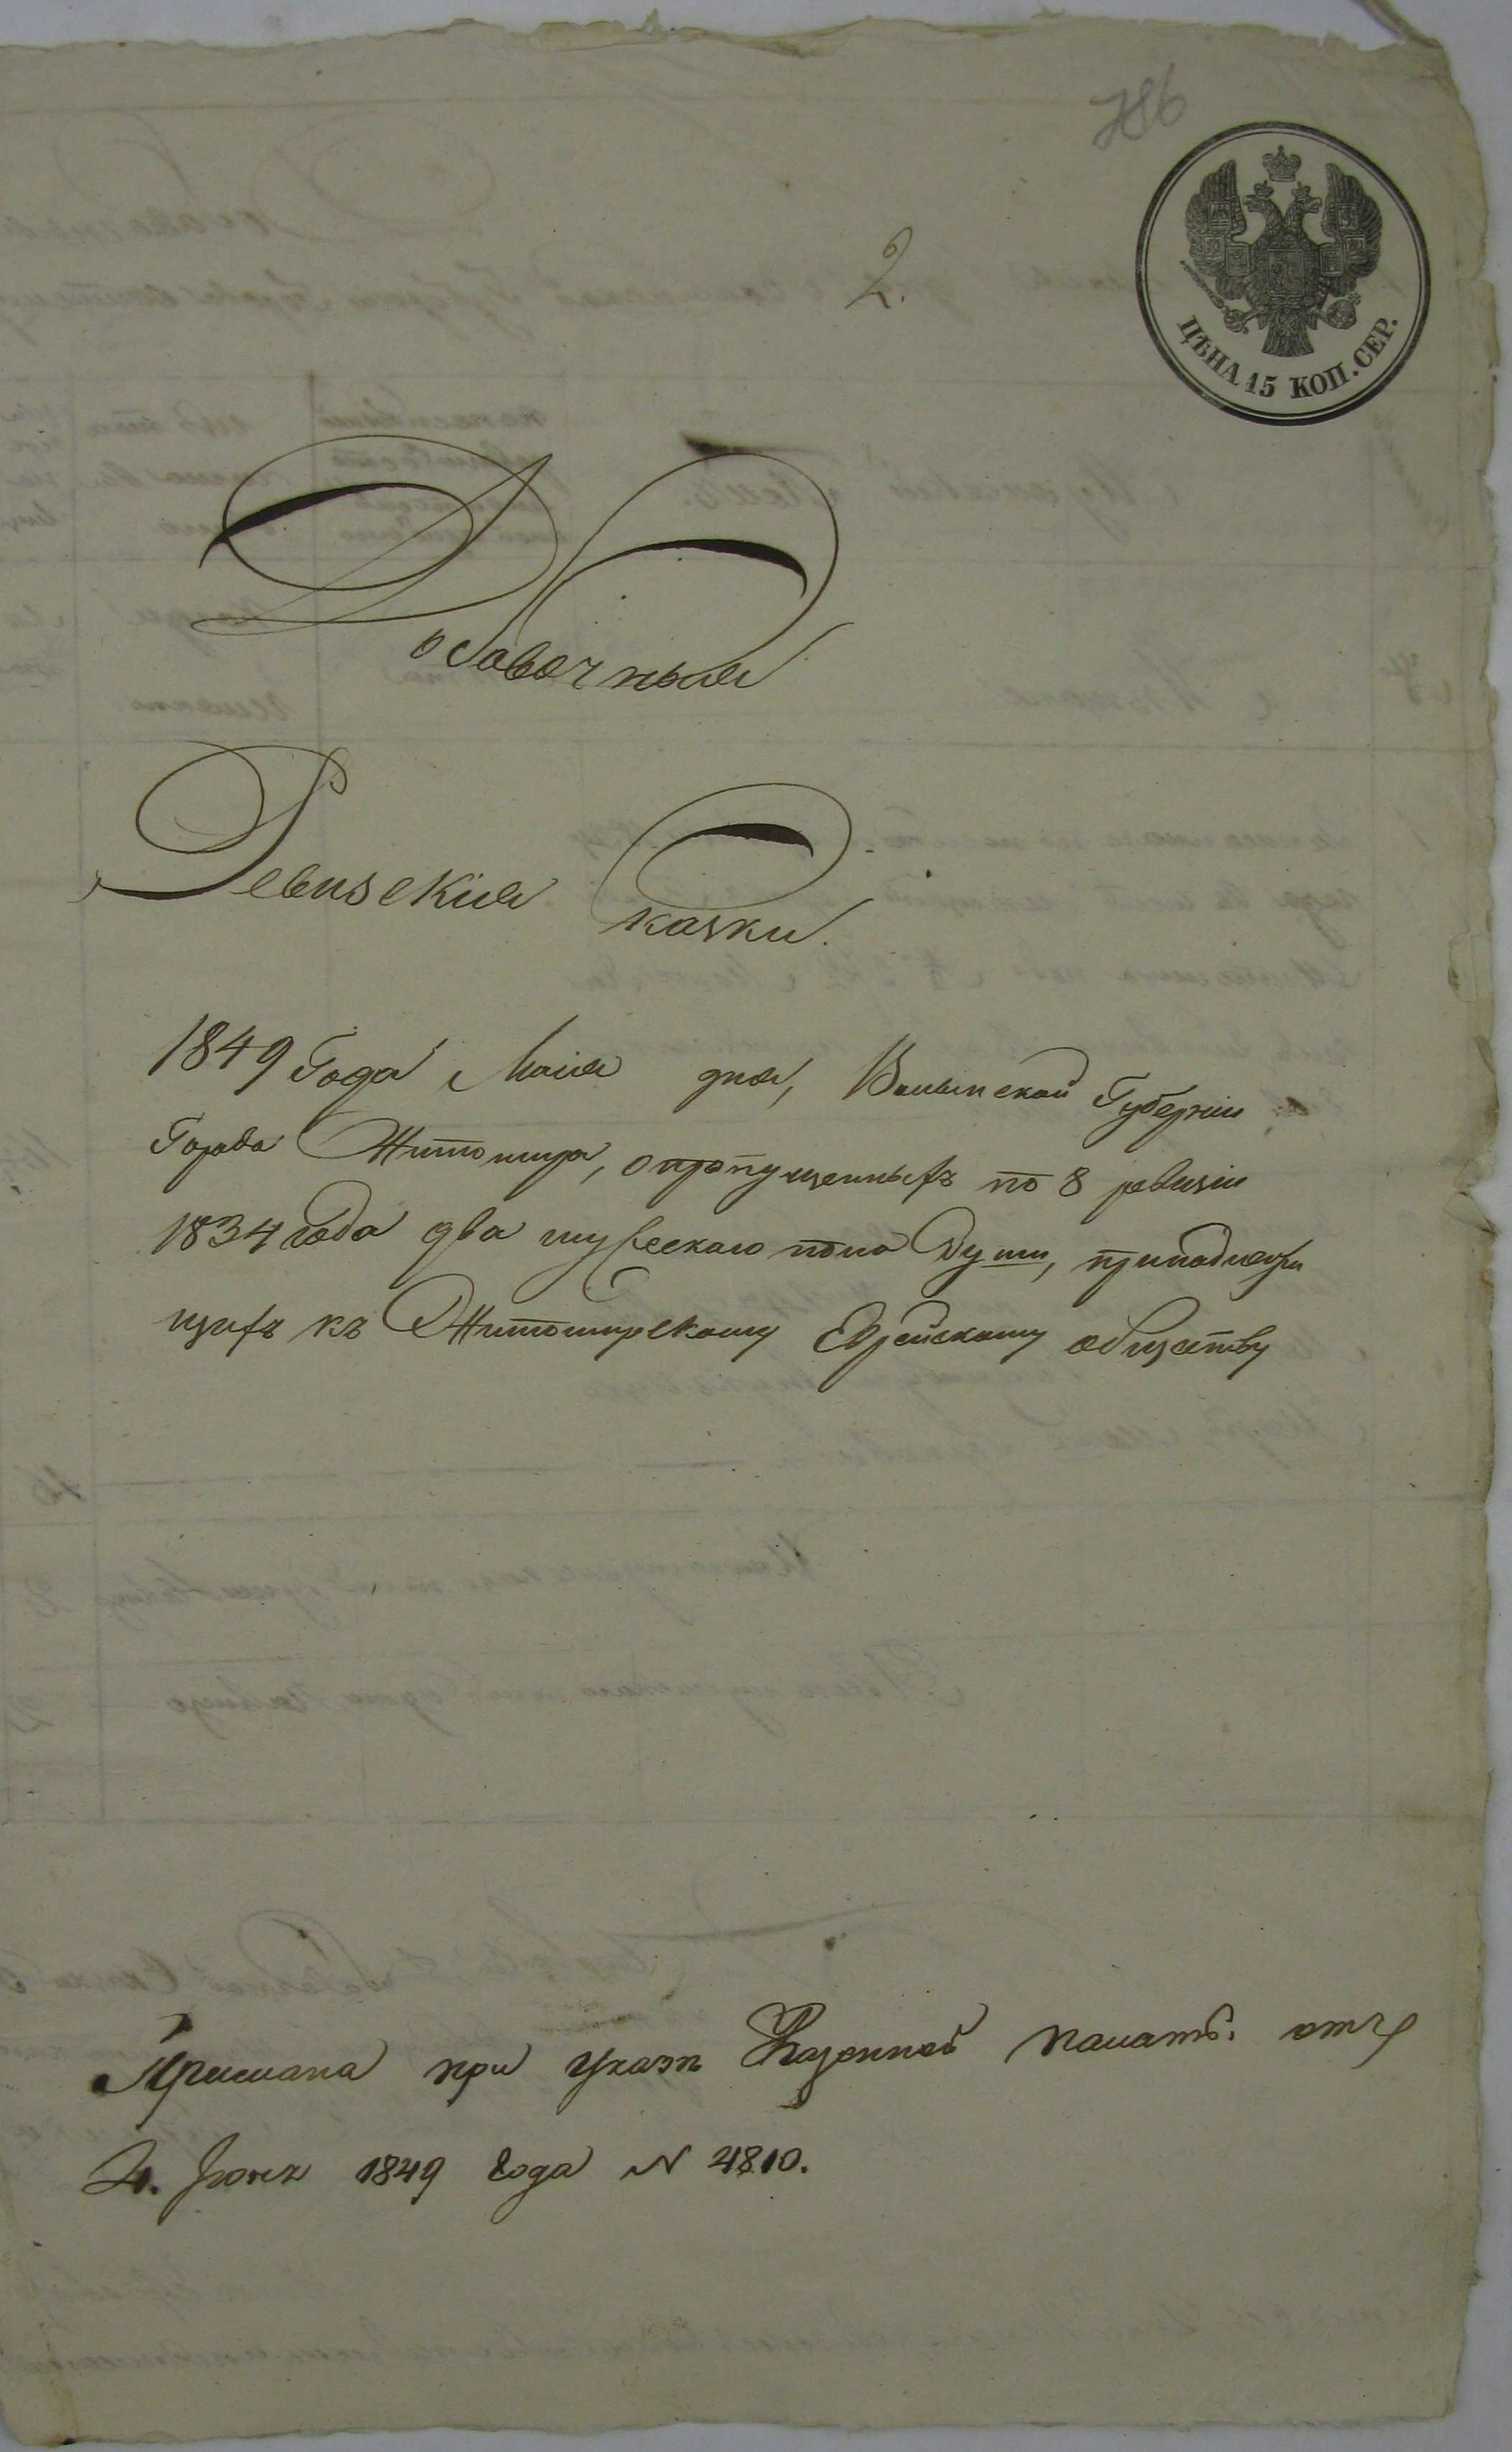 786
2.
ЦѢНА 15 КОП. СЕР.
Добавочныя
Ревизскія Сказки.
1849 Года Маія дня, Волынской Губерніи
Города Житомира, о пропущенныхъ по 8 ревизіи
1834 года два мужескаго пола души, принадлежа
щихъ къ Житомирскому Еврейскому обществу
Прислана при указѣ Казенной палаты. отъ
4. Іюня 1849 года N 4810.